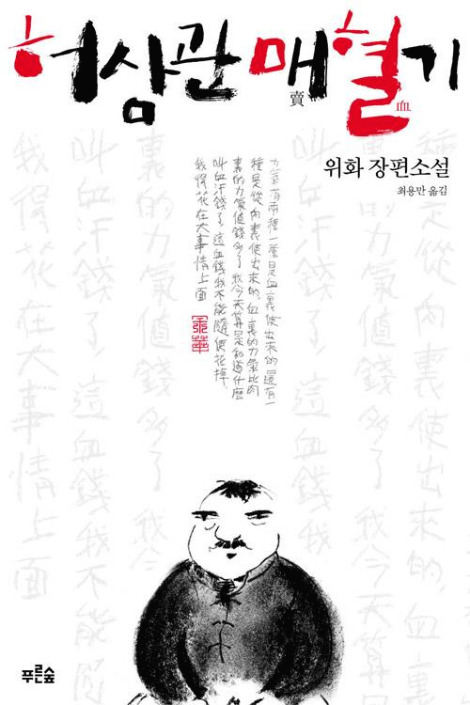 허삼관 매혈기
賣 血
위화 장편소설
최용만 옮김
力氣有兩種 一種是血裏使出來的 還有一
種是從肉裏使出來的，血裏的力氣比肉
裏的力氣值錢多了 我今天算是知道什麼
叫血汗錢了，這血錢我不能隨便花掉，
我得花在大事情上面
裏的力氣值錢多了 我今
叫血汗錢了 這血錢我不能隨
我得花在大事情上面
푸른숲